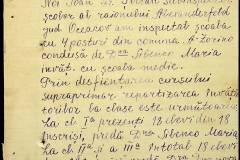 Noi Ioan Gr.
școlar al raionului
jud. Oceacov am inspectat școala
cu 4 posturi din comuna
condusă de D-na Sibenco Maria
învăț. cu școala medie.
Prin desființarea cursului
supraprimar, repartizarea învăță-
torilor la clase este următoarea
La cl. I-a prezenți 18 elevi din 18
înscriși, predă D-na Sibenco Maria
La cl. II-a și a III-a în total 18 elevi